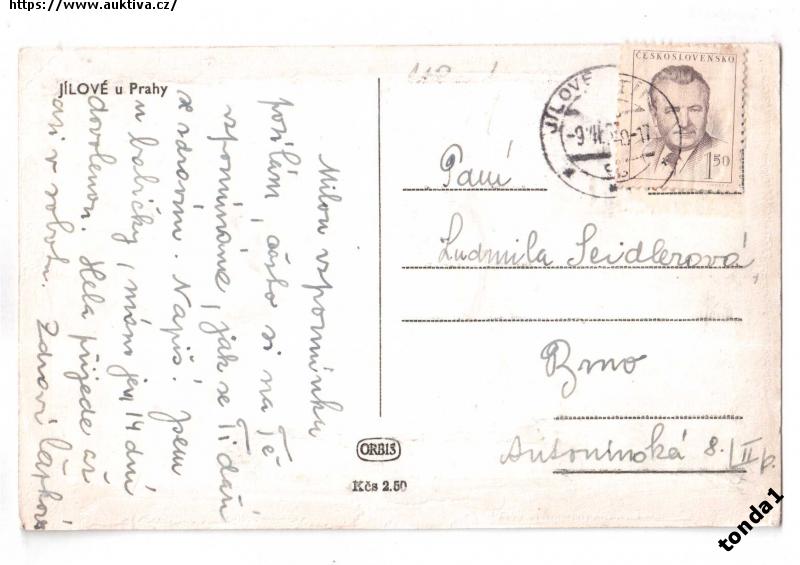 https://www.auktiva.cz/
JÍLOVÉ u Prahy
Milou vzpomínku
posílám, často si na Tě
vzpomínáme, jak se Ti daří
se zdravím. Napiš! Jsem
u babičky, mám jen 14 dní
dovolenou. Hela přijede až
asi v sobotu. Zdraví
ČESKOSLOVENSKO
1.50
JÍLOVÉ
Paní
Ludmila Seidlerová,
Brno
Antonínská 8./II p.
ORBIS
Kčs 2.50
tonda1